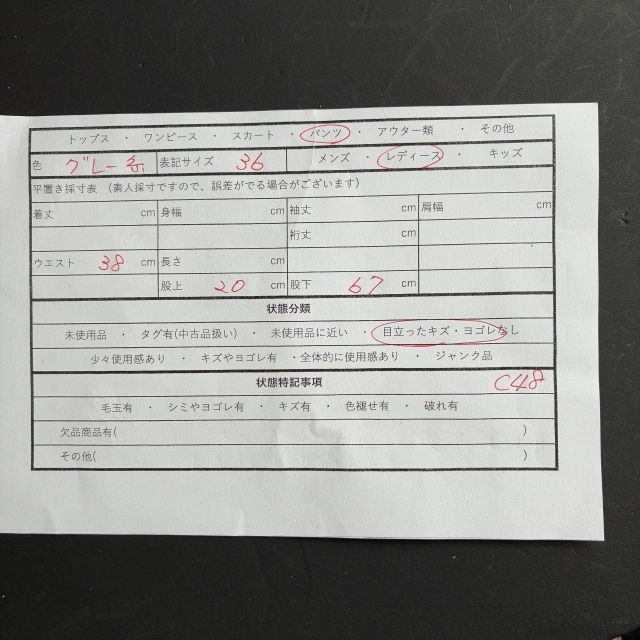 トップス ・ ワンピース ・ スカート ・ パンツ ・ アウター類 ・ その他
色 グレー系 表記サイズ 36 メンズ ・ レディース ・ キッズ
平置き採寸表 （素人採寸ですので、誤差がでる場合がございます）
着丈 cm 身幅 cm 袖丈 cm 肩幅 cm
裄丈 cm
ウエスト 38 cm 長さ cm
股上 20 cm 股下 67 cm
状態分類
未使用品 ・ タグ有(中古品扱い) ・ 未使用品に近い ・ 目立ったキズ・ヨゴレなし
少々使用感あり ・ キズやヨゴレ有 ・全体的に使用感あり ・ ジャンク品
状態特記事項 C48
毛玉有 ・ シミやヨゴレ有 ・ キズ有 ・ 色褪せ有 ・ 破れ有
欠品商品有( )
その他( )